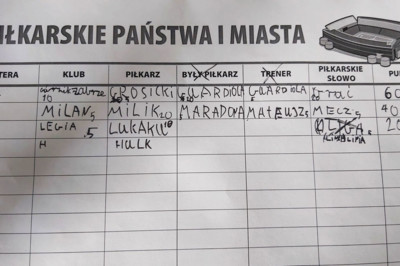 PIŁKARSKIE PAŃSTWA I MIASTA
TERA KLUB PIŁKARZ BYŁY PIŁKARZ TRENER PIŁKARSKIE SŁOWO PU
10 GROSICKI GUARDIOLA GUARDIOLA Grać 60
MiLAN 5 MiLiK 20 MARADONA MATEUSZ 5 MECZ 5 40
LEGIA .5 LUKAKU 10 20
H HULK